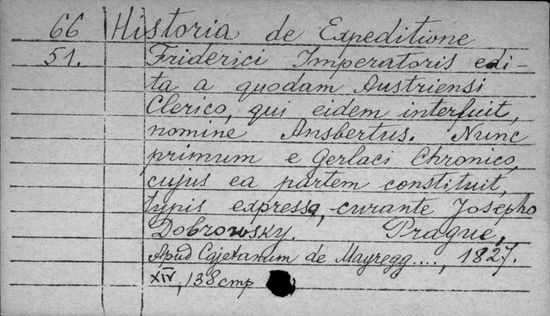 66 Historia de Expeditione
51. Friderici Imperatoris edi-
ta a quodam Austriensi
Clerico, qui eidem interfuit,
nomine Ansbertus. Nunc
primum e Gerlaci Chronico,
cujus ea partem constituit,
typis expressa, curante Josepho
Dobrowsky. Prague,
Apud Cajetanum de Mayregg...., 1827.
XIV, 138 cmp